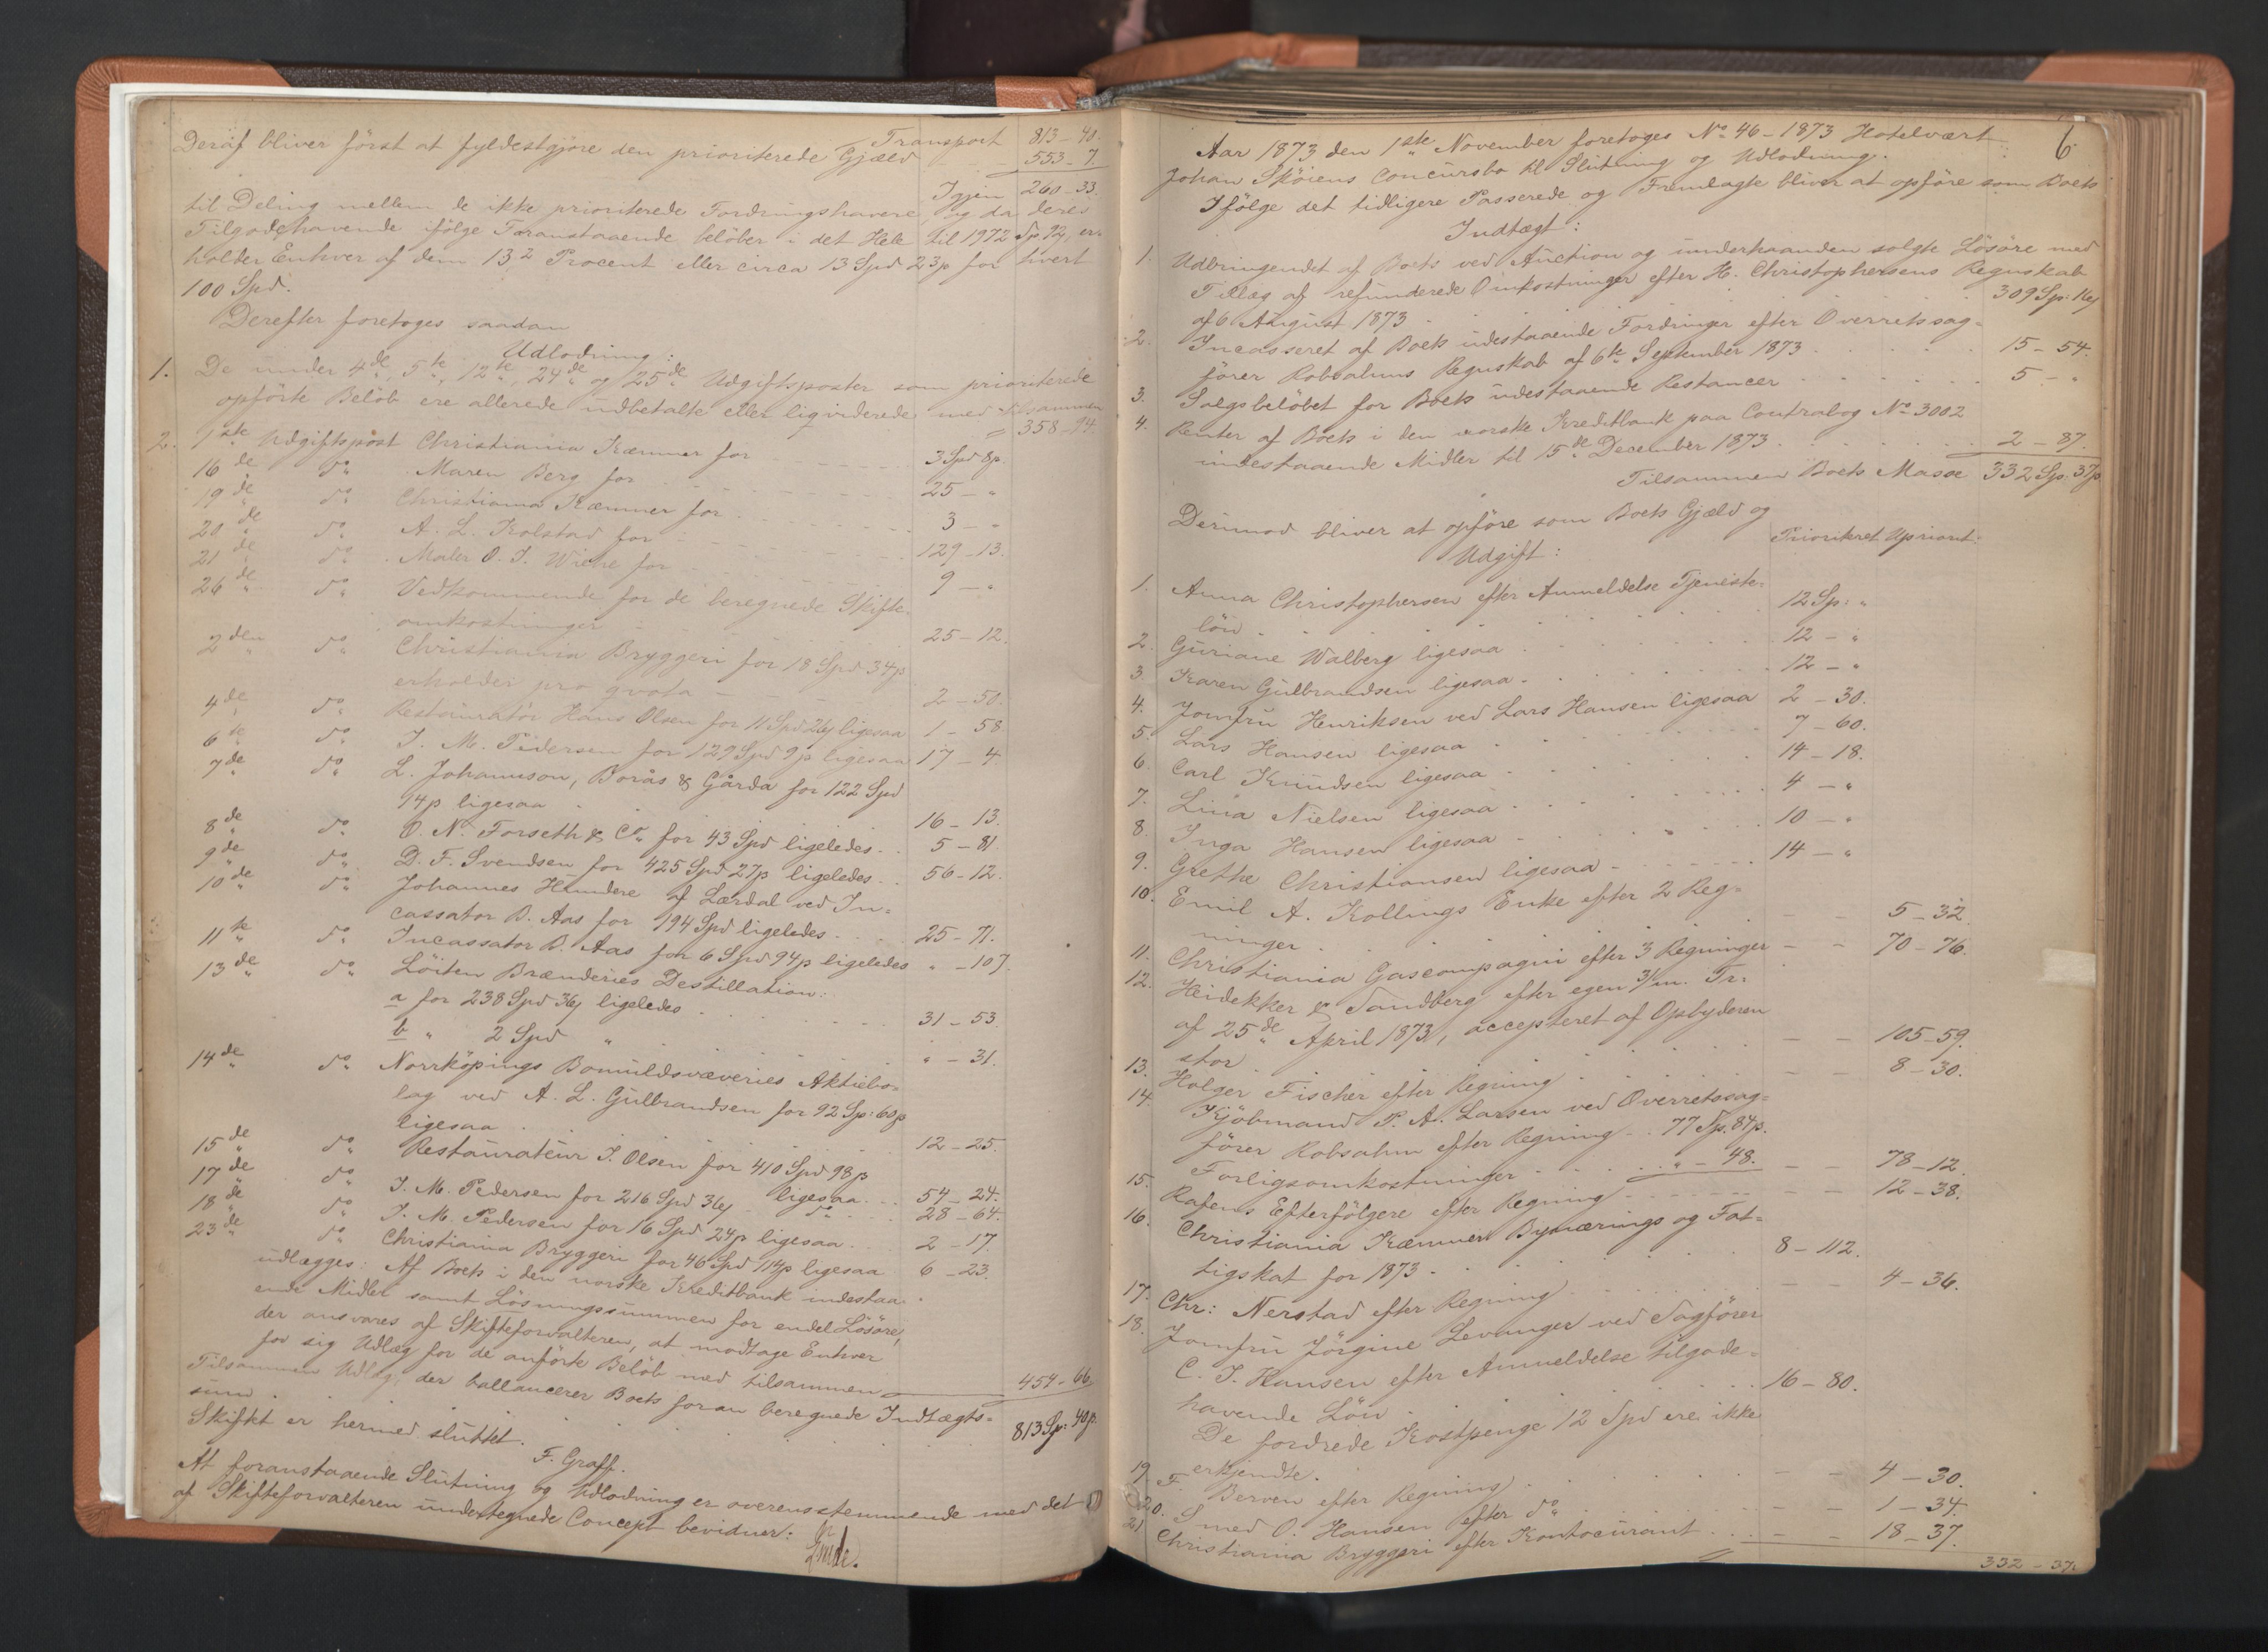 Transport 813 – 40.
Deraf bliver först at fyldestgjöre den prioriterede Gjæld 553 – 7.
Igjen 260 – 33.
til Deling mellem de ikke prioriterede Fordringshavere og da deres
Tilgodehavende ifölge Foranstaaende belöber i det Hele til 1972 Sp. 92, er-
holder Enhver af dem 13² Procent eller circa 13 Spd 23p for hvert
100 Spd.
Derefter foretoges saadan
Udlodning:
1. De under 4de, 5te, 12te, 24de og 25de Udgiftsposter som prioriterede
opförte Belöb ere allerede udbetalte eller ligviderede med tilsammen
358 – 94.
2. 1ste Udgiftspost Christiania Kæmner for 3 Spd 8p.
16de do Maren Berg for 25 – "
19de do Christiania Kæmner for 3 – "
20de do A. L. Kolstad for 129 – 13.
21de do Maler O. J. Wiche for 9 – "
26de do Vedkommende for de beregnede Skifte-
omkostninger 25 – 12.
2den do Christiania Bryggeri for 18 Spd 34p
erholder pro qvota 2 – 50.
4de do Restauratör Hans Olsen for 11 Spd 26p ligesaa 1 – 58
6te do J. M. Pedersen for 129 Spd 9p ligesaa 17 – 4.
7de do L. Johannson, Borås & Gårda for 122 Spd
94p ligesaa 16 – 13.
8de do O. N. Forseth & Co. for 43 Spd ligeledes 5 – 81.
9de do D. F. Svendsen for 425 Spd 27p ligeledes 56 – 12.
10de do Johannes Hundere af Lærdal ved In-
cassator B. Aas for 194 Spd ligeledes 25 – 71.
11te do Incassator B. Aas for 6 Spd 94p ligeledes " – 107.
13de do Löiten Brænderies Destillation:
a for 238 Spd 36p ligeledes 31 – 53.
b " 2 Spd " " – 31.
14de do Norrköpings Bomuldsvæveries Aktiebo-
lag ved A. L. Gulbrandsen for 92 Sp: 60p
ligesaa 12 – 25.
15de do Restaurateur J. Olsen for 410 Spd 98p
ligesaa 54 – 24.
17de do J. M. Pedersen for 216 Spd 36p do 28 – 64.
18de do J. M. Pedersen for 16 Spd 24p ligesaa 2 – 17.
23de do Christiania Bryggeri for 46 Spd 114p ligesaa 6 – 23.
udlægges: Af Boets i den norske Kreditbank indestaa-
ende Midler samt Lösningssummen for endel Lösöre,
der ansvares af Skifteforvalteren, at modtage Enhver
for sig Udlæg for de anförte Belöb med tilsammen 454 – 66.
Tilsammen Udlæg, der ballancerer Boets foran beregnede Indtægts-
sum 813 Sp: 40p.
Skiftet er hermed sluttet.
F. Graff.
At foranstaaende Slutning og Udlodning er overensstemmende med det
af Skifteforvalteren undertegnede Concept bevidner:
6
Aar 1873 den 1ste November foretoges No. 46 – 1873 Hotelvært
Johan Sköiens Concursbo til Slutning og Udlodning.
Ifölge det tidligere Passerede og Fremlagte bliver at opföre som Boets
Indtægt:
1. Udbringendet af Boets ved Auction og underhaanden solgte Lösöre med
Tillæg af refunderede Omkostninger efter H. Christophersens Regnskab
af 6 August 1873 309 Sp: 16p
2. Incasseret af Boets udestaaende Fordringer efter Overretssag-
förer Robsahms Regnskab af 6te September 1873 15 – 54.
3. Salgsbelöbet for Boets udestaaende Restancer 5 – "
4. Renter af Boets i den norske Kreditbank paa Contrabog No. 3002
indestaaende Midler til 15de December 1873 2 – 87.
Tilsammen Boets Masse 332 Sp: 37p
Derimod bliver at opföre som Boets Gjæld og
Udgift: Prioriteret Upriorit:
1. Anna Christophersen efter Anmeldelse Tjeneste-
lön 12 Sp: "
2. Guriane Walberg ligesaa 12 – "
3. Karen Gulbrandsen ligesaa 12 – "
4. Jomfru Henriksen ved Lars Hansen ligesaa 2 – 30.
5. Lars Hansen ligesaa 7 – 60.
6. Carl Knudsen ligesaa 14 – 18.
7. Lina Nielsen ligesaa 4 – "
8. Inga Hansen ligesaa 10 – "
9. Grethe Christiansen ligesaa 14 – "
10. Emil A. Kollings Enke efter 2 Reg-
ninger 5 – 32.
11. Christiania Gascompagni efter 3 Regninger 70 – 76.
12. Heidekker & Sandberg efter egen 3/m. Tr.
af 25de April 1873, accepteret af Opbyderen
stor 105 – 59.
13. Holger Fischer efter Regning 8 – 30.
14. Kjöbmand P. A. Larsen ved Overretssag-
förer Robsahm efter Regning 77 Sp. 84p.
Forligsomkostninger " – 48. 78 – 12.
15. Rafens Efterfölgere efter Regning 12 – 38.
16. Christiania Kæmner Bynærings og Fat-
tigskat for 1873 8 – 112.
17. Chr: Nerstad efter Regning 4 – 36.
18. Jomfru Jörgine Levanger ved Sagförer
C. J. Hansen efter Anmeldelse tilgode-
havende Lön 16 – 80.
De fordrede Kostpenge 12 Spd ere ikke
erkjendte.
19. F. Berven efter Regning 4 – 30.
20. Smed O. Hansen efter do 1 – 34.
21. Christiania Bryggeri efter Kontocurant 18 – 37.
332 – 37.